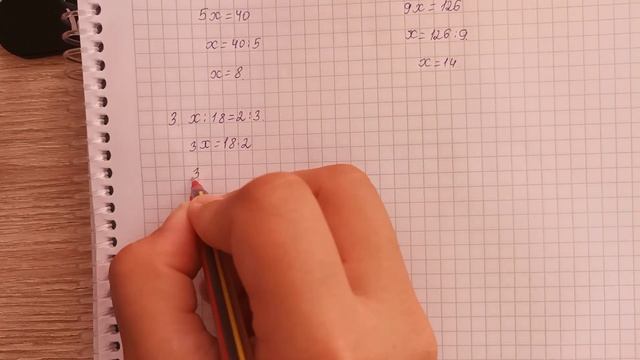 5x=40
x=40:5
x=8
9x=126
x=126:9
x=14
3. x:18=2:3
3x=18·2
3